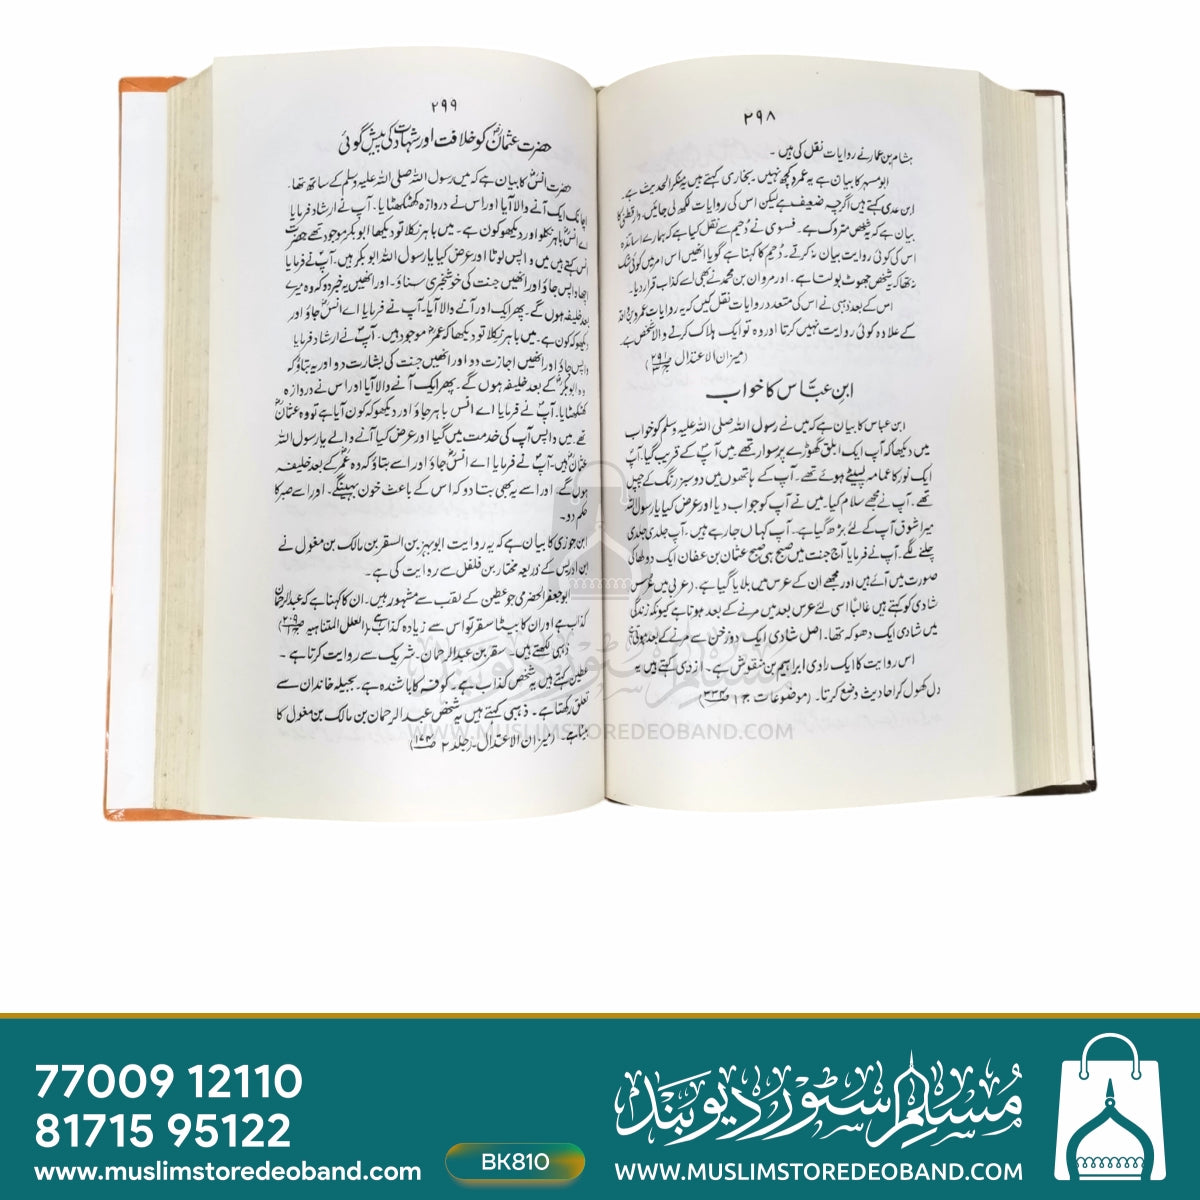 ۲۹۸
ہشام بن عمار نے روایات نقل کی ہیں۔
ابو مسہر کا بیان ہے یہ عمرو کچھ نہیں۔ بخاری کہتے ہیں یہ منکر الحدیث ہے۔
ابن عدی کہتے ہیں اگرچہ ضعیف ہے لیکن اس کی روایات لکھ لی جائیں۔ دارقطنی کا
بیان ہے کہ یہ شخص متروک ہے۔ فسوی نے دُحیم سے نقل کیا ہے کہ ہمارے اساتذہ
اس کی کوئی روایت بیان نہ کرتے۔ دُحیم کا کہنا ہے گویا انھیں اس امر میں کوئی شک
نہ تھا کہ یہ شخص جھوٹ بولتا ہے۔ اور مروان بن محمد نے بھی اسے کذاب قرار دیا۔
اس کے بعد ذہبی نے اس کی متعدد روایات نقل کیں کہ یہ روایات عمرو بن واقد
کے علاوہ کوئی روایت نہیں کرتا اور وہ تو ایک ہلاک کرنے والا شخص ہے۔
(میزان الاعتدال ج۳ ص۲۹۱)
ابن عبّاس کا خواب
ابن عباس کا بیان ہے کہ میں نے رسول اللہ صلی اللہ علیہ وسلم کو خواب
میں دیکھا کہ آپ ایک ابلق گھوڑے پر سوار تھے میں آپ کے قریب گیا، آپ
ایک نور کا عمامہ لپیٹے ہوئے تھے۔ آپ کے ہاتھوں میں دو سبز رنگ کے چپل
تھے۔ آپ نے مجھے سلام کیا۔ میں نے آپ کو جواب دیا اور عرض کیا یا رسول اللہ
میرا شوق آپ کے لئے بڑھ گیا ہے۔ آپ کہاں جا رہے ہیں۔ آپ جلدی جلدی
چلنے لگے۔ آپ نے فرمایا آج جنت میں صبح ہی صبح عثمان بن عفان ایک دولھا کی
صورت میں آئے ہیں اور مجھے ان کے عرس میں بلایا گیا ہے۔ (عربی میں عرس
شادی کو کہتے ہیں غالباً اسی لئے عرس بعد میں مرنے کے بعد ہوتا ہے کیونکہ زندگی
میں شادی ایک دھوکہ تھا۔ اصل شادی ایک دوزخن سے مرنے کے بعد ہوتی
اس روایت کا ایک راوی ابراہیم بن منقوش ہے۔ ازدی کہتے ہیں یہ
دل کھول کر احادیث وضع کرتا۔ (موضوعات ج۱ ص۳۳۴)
۲۹۹
حضرت عثمانؓ کو خلافت اور شہادت کی پیش گوئی
حضرت انسؓ کا بیان ہے کہ میں رسول اللہ صلی اللہ علیہ وسلم کے ساتھ تھا۔
اچانک ایک آنے والا آیا اور اس نے دروازہ کھٹکھٹایا۔ آپ نے ارشاد فرمایا
اے انسؓ باہر نکلو اور دیکھو کون ہے۔ میں باہر نکلا تو دیکھا ابوبکر موجود تھے حضرت
انس کہتے ہیں میں واپس لوٹا اور عرض کیا یا رسول اللہ ابوبکر ہیں۔ آپ نے فرمایا
اچھا واپس جاؤ اور انھیں جنت کی خوشخبری سناؤ۔ اور انھیں یہ خبر دو کہ وہ میرے
بعد خلیفہ ہوں گے۔ پھر ایک اور آنے والا آیا۔ آپ نے فرمایا اے انسؓ جاؤ اور
دیکھو کہ کون ہے۔ میں باہر نکلا تو دیکھا کہ عمرؓ موجود ہیں۔ آپ نے ارشاد فرمایا
واپس جاؤ اور انھیں اجازت دو اور انھیں جنت کی بشارت دو اور یہ بتاؤ کہ
وہ ابوبکرؓ کے بعد خلیفہ ہوں گے۔ پھر ایک آنے والا آیا اور اس نے دروازہ
کھٹکھٹایا۔ آپ نے فرمایا اے انس باہر جاؤ اور دیکھو کہ کون آیا ہے تو وہ عثمانؓ
تھے۔ میں واپس آپ کی خدمت میں گیا اور عرض کیا آنے والے یا رسول اللہ
عثمانؓ ہیں۔ آپ نے فرمایا اے انسؓ جاؤ اور اسے بتاؤ کہ وہ عمرؓ کے بعد خلیفہ
ہوں گے۔ اور اسے یہ بھی بتا دو کہ اس کے باعث خون بہینگے۔ اور اسے صبر کا
حکم دو۔
ابن جوزی کا بیان ہے کہ یہ روایت ابو بہز بن السقر بن مالک بن مغول نے
ابن ادریس کے ذریعہ مختار بن فلفل سے روایت کی ہے۔
ابو جعفر الحضرمی جو مطین کے لقب سے مشہور ہیں۔ ان کا کہنا ہے کہ عبدالرحمان
کذاب ہے اور ان کا بیٹا سقر تو اس سے زیادہ کذاب ہے۔ (العلل المتناہیہ ج۱ ص۲۰۹)
ذہبی لکھتے ہیں۔ سقر بن عبدالرحمان۔ شریک سے روایت کرتا ہے۔
مطین کہتے ہیں یہ شخص کذاب ہے۔ کوفہ کا باشندہ ہے۔ بجیلہ خاندان سے
تعلق رکھتا ہے۔ ذہبی کہتے ہیں یہ شخص عبدالرحمان بن مالک بن مغول کا
بیٹا ہے۔ (میزان الاعتدال۔ جلد ۲ ص۱۷۴)
مسلم سٹور دیوبند
WWW.MUSLIMSTOREDEOBAND.COM
77009 12110
81715 95122
www.muslimstoredeoband.com
BK810
مسلم سٹور دیوبند
WWW.MUSLIMSTOREDEOBAND.COM